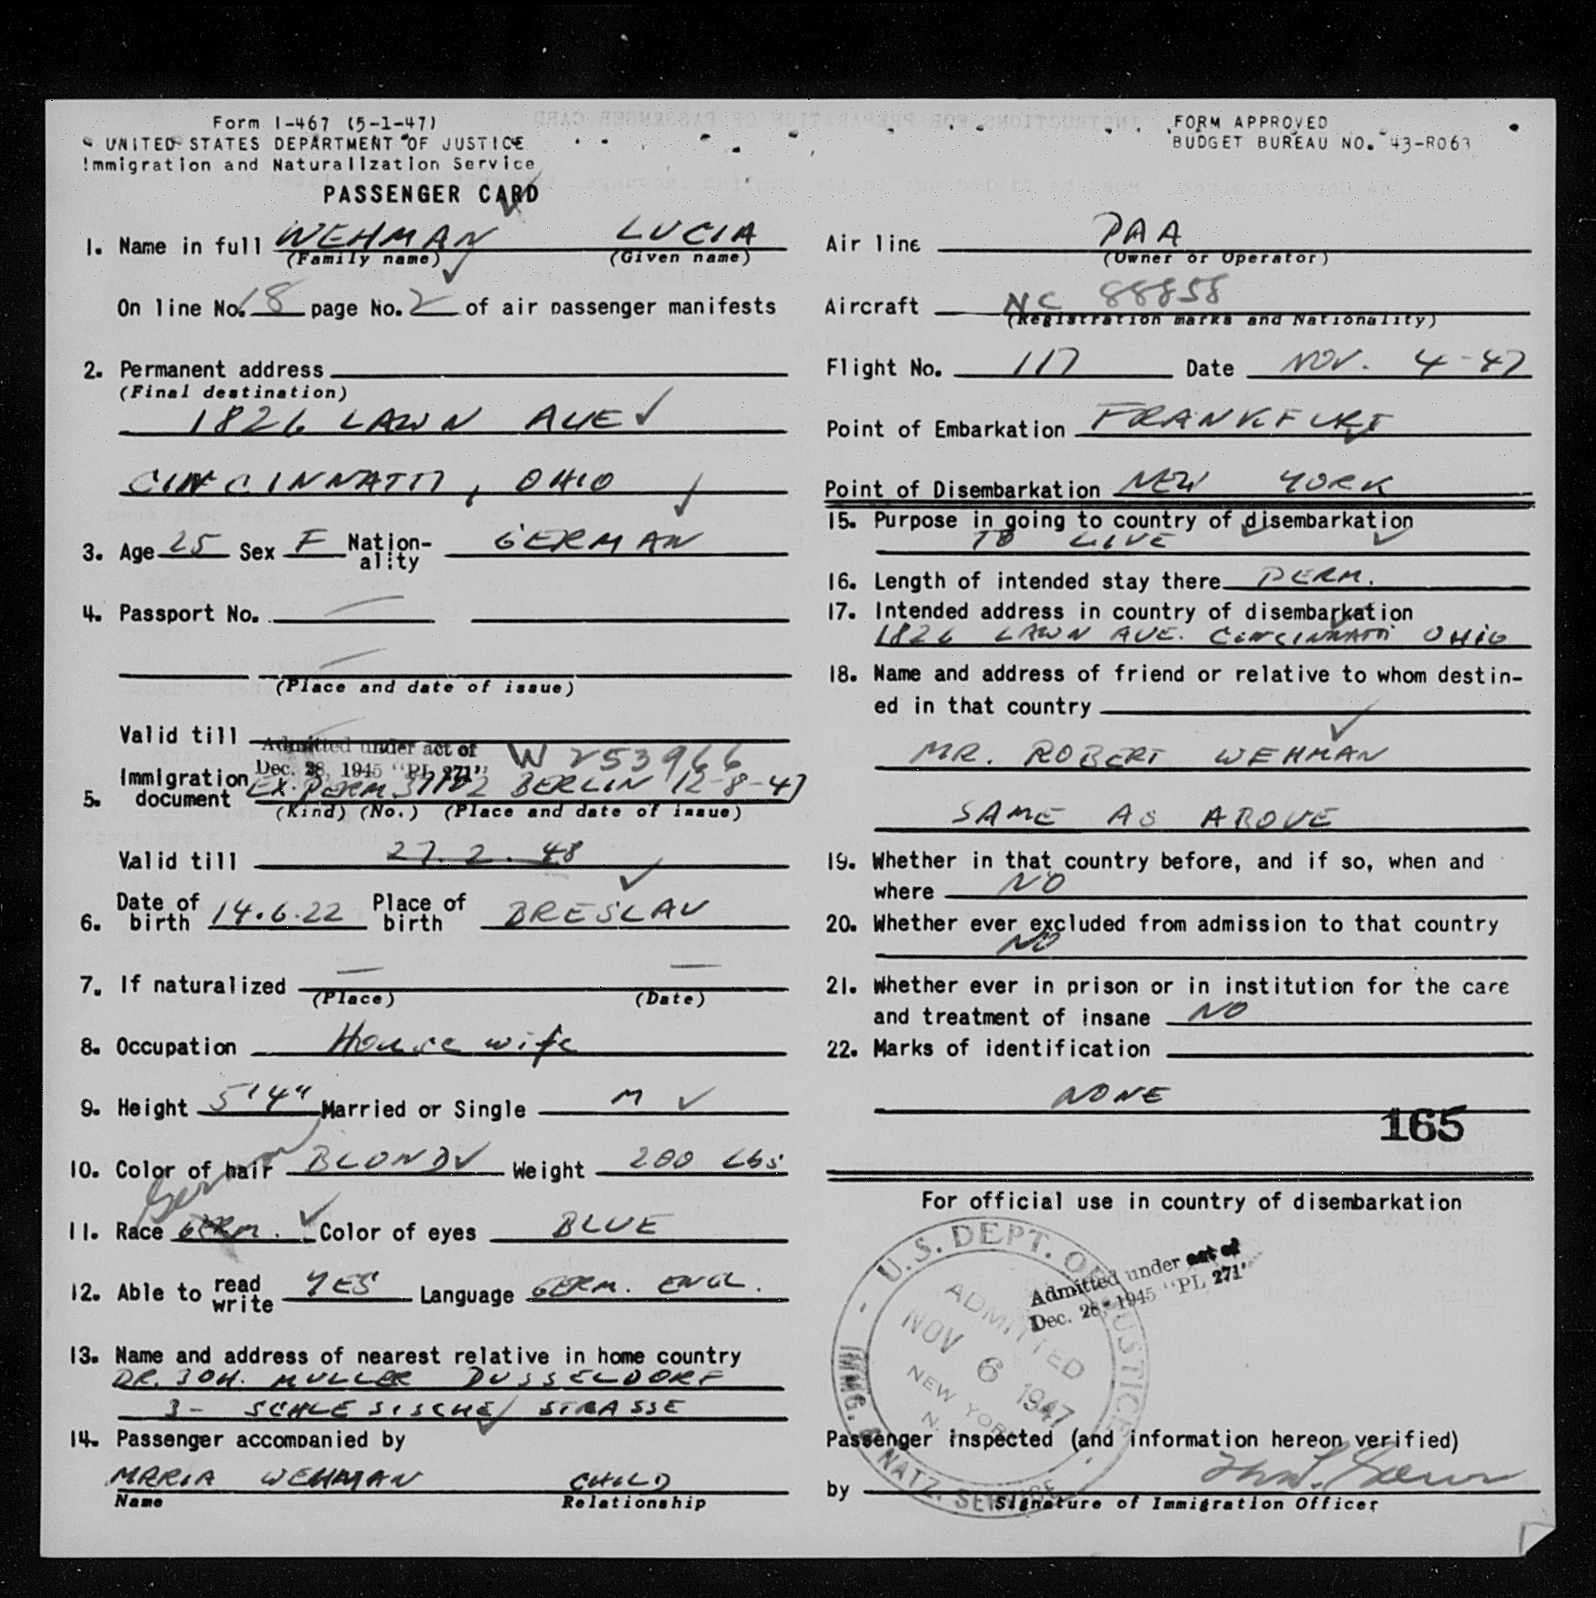 Form I-467 (5-1-47)
UNITED STATES DEPARTMENT OF JUSTICE
Immigration and Naturalization Service
PASSENGER CARD
FORM APPROVED
BUDGET BUREAU NO. 43-R063
1. Name in full WEHMAN LUCIA
(Family name) (Given name)
On line No. 18 page No. 2 of air passenger manifests
2. Permanent address
(Final destination)
1826 LAWN AUE
CINCINNATTI, OHIO
3. Age 25 Sex F Nation-ality GERMAN
4. Passport No. —
—
(Place and date of issue)
Valid till
Admitted under act of
Dec. 28, 1945 "PL 271"
W 253966
5. Immigration document EX. PERM. BERLIN 12-8-47
(Kind) (No.) (Place and date of issue)
Valid till 27.2.48
6. Date of birth 14.6.22 Place of birth BRESLAU
7. If naturalized — —
(Place) (Date)
8. Occupation House wife
9. Height 5'4" Married or Single M
10. Color of hair BLOND Weight 200 Lbs
German
11. Race GERM. Color of eyes BLUE
12. Able to read write YES Language GERM. ENGL.
13. Name and address of nearest relative in home country
DR. JOH. MULLER DUSSELDORF
3- SCHLESISCHE STRASSE
14. Passenger accompanied by
MARIA WEHMAN CHILD
Name Relationship
Air line PAA
(Owner or Operator)
Aircraft NC 88858
(Registration marks and Nationality)
Flight No. 117 Date NOV. 4-47
Point of Embarkation FRANKFURT
Point of Disembarkation NEW YORK
15. Purpose in going to country of disembarkation
TO LIVE
16. Length of intended stay there PERM.
17. Intended address in country of disembarkation
1826 LAWN AUE. CINCINNATTI OHIO
18. Name and address of friend or relative to whom destin-
ed in that country
MR. ROBERT WEHMAN
SAME AS ABOVE
19. Whether in that country before, and if so, when and
where NO
20. Whether ever excluded from admission to that country
NO
21. Whether ever in prison or in institution for the care
and treatment of insane NO
22. Marks of identification
NONE
165
For official use in country of disembarkation
U.S. DEPT. OF JUSTICE
IMMG. & NATZ. SERVICE
ADMITTED
NOV 6 1947
NEW YORK
N.
Admitted under act of
Dec. 28, 1945 "PL 271"
Passenger inspected (and information hereon verified)
by
Signature of Immigration Officer